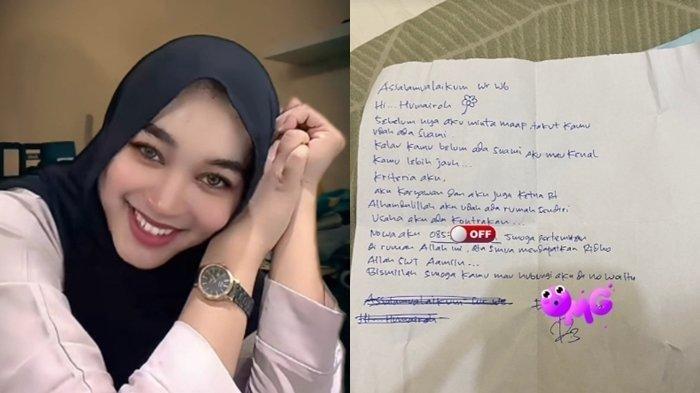 Assalamualaikum Wr Wb
Hi... Humairoh
Sebelum nya aku minta maap, takut kamu
udah ada suami.
Kalau kamu belum ada suami aku mau kenal
kamu lebih jauh...
Kriteria aku,
aku karyawan dan aku juga Ketua Rt
Alhamdulillah aku udah ada rumah sendiri
Usaha aku ada kontrakan...
No wa aku 085 OFF Smoga pertemuan
di rumah Allah ini, kita smua mendapatkan Ridho
Allah SWT Aamiin...
Bismillah smoga kamu mau hubungi aku di no wa itu
Assalamualaikum
Hi... Humairoh
OMG